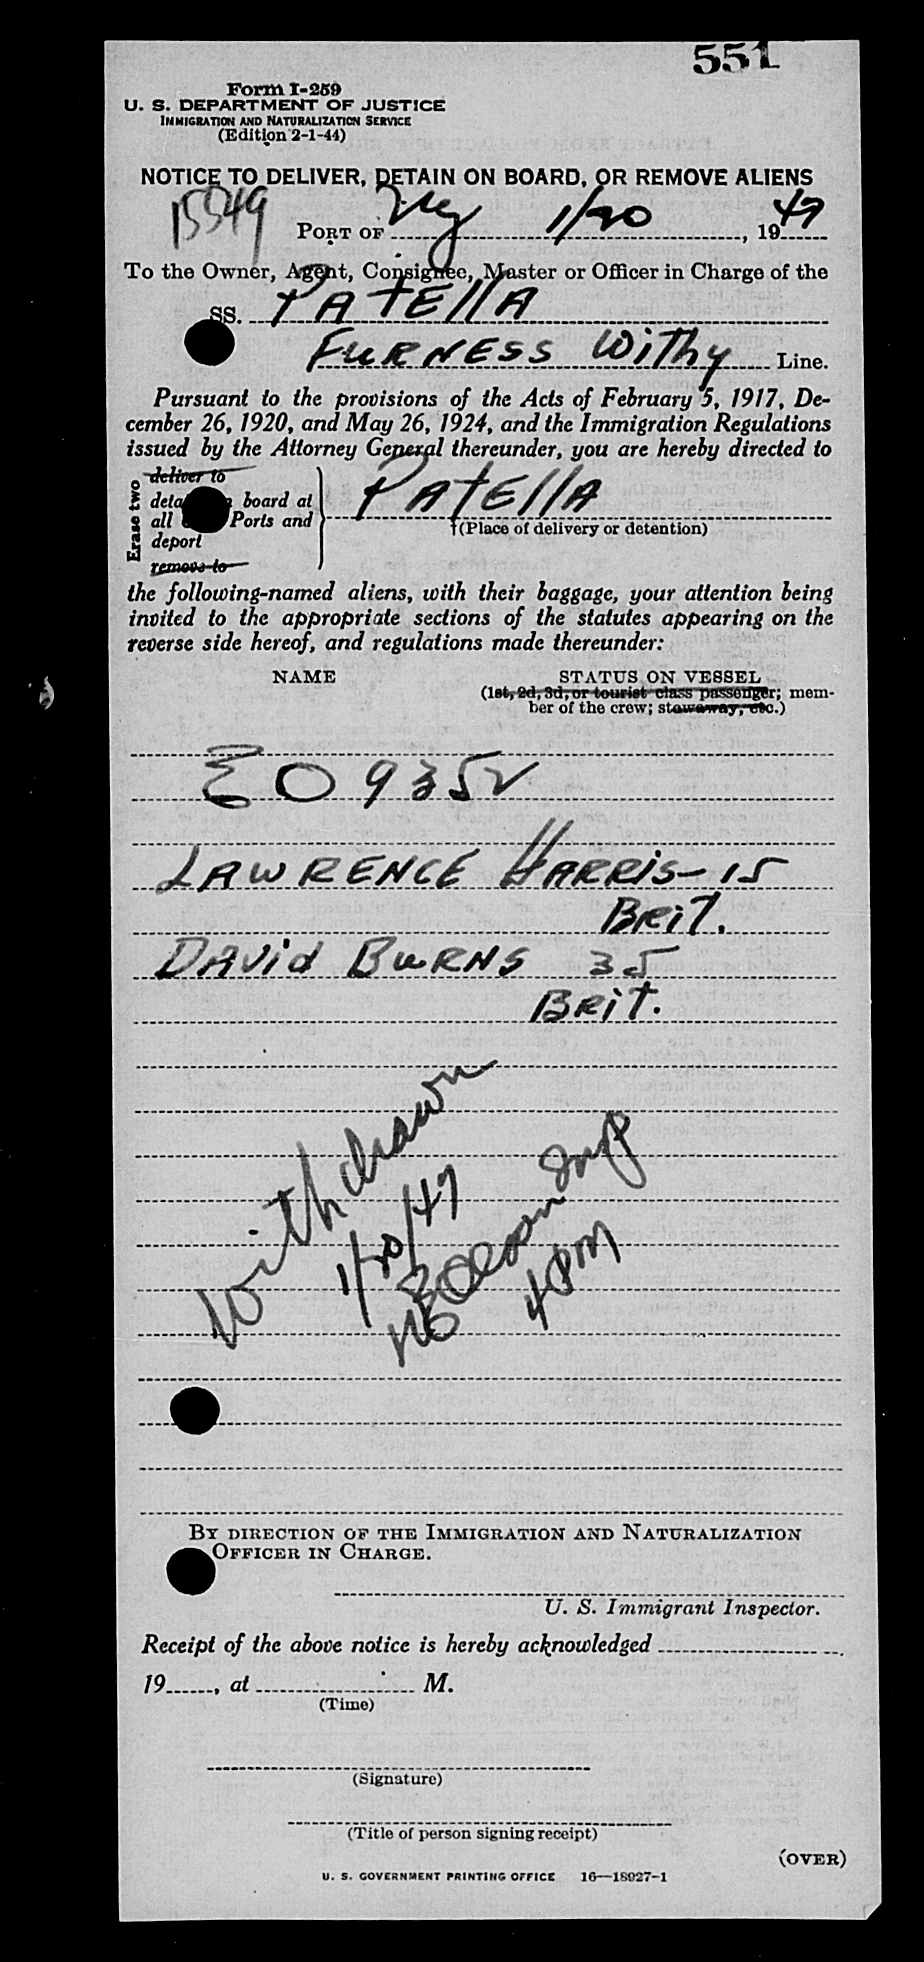 551
Form I-259
U. S. DEPARTMENT OF JUSTICE
IMMIGRATION AND NATURALIZATION SERVICE
(Edition 2-1-44)
NOTICE TO DELIVER, DETAIN ON BOARD, OR REMOVE ALIENS
15549
PORT OF NY 1/20, 1949
To the Owner, Agent, Consignee, Master or Officer in Charge of the
SS. PATElla
FURNESS WiThy Line.
Pursuant to the provisions of the Acts of February 5, 1917, De-
cember 26, 1920, and May 26, 1924, and the Immigration Regulations
issued by the Attorney General thereunder, you are hereby directed to
Erase two
deliver to
board at
all Ports and
deport
remove to
PATElla
†(Place of delivery or detention)
the following-named aliens, with their baggage, your attention being
invited to the appropriate sections of the statutes appearing on the
reverse side hereof, and regulations made thereunder:
NAME STATUS ON VESSEL
(1st, 2d, 3d, or tourist class passenger; mem-
ber of the crew; stowaway, etc.)
EO 9352
LAWRENCE HARRIS - 15
BRiT.
DAVid BURNS 35
BRiT.
Withdrawn
1/20/49
4 PM
BY DIRECTION OF THE IMMIGRATION AND NATURALIZATION
OFFICER IN CHARGE.
U. S. Immigrant Inspector.
Receipt of the above notice is hereby acknowledged
19, at M.
(Time)
(Signature)
(Title of person signing receipt)
(OVER)
U. S. GOVERNMENT PRINTING OFFICE 16—18927-1